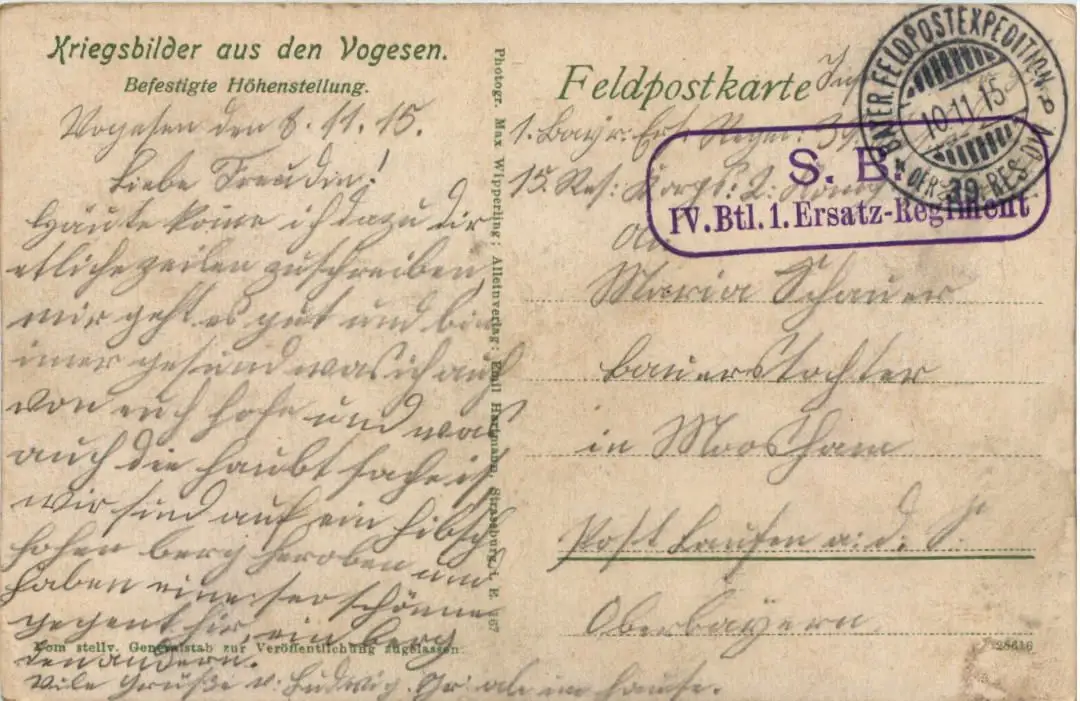 Kriegsbilder aus den Vogesen.
Befestigte Höhenstellung.
Vogesen den 8. 11. 15.
Liebe Freundin!
Häute kome ich dazu dir
etliche zeilen zuschreiben,
mir geht es gut und bin
imer gesund was ich auch
von euch hofe und was
auch die haubt sache ist
wir sind auf ein hibsch
hohen berg heroben und
haben eine ser schönne
gegent hir, ein berg
den andern.
Vile Grüße v. Ludwig.
als im hause.
Vom stellv. Generalstab zur Veröffentlichung zugelassen.
Photogr. Max Wipperling; Alleinverlag: Emil Hartmann, Strassburg i. E. 167
Feldpostkarte
1. Bayr. Ers. Regm: 39
15. Res: Korps:
BAYER. FELDPOSTEXPEDITION
10.11.15
DER 39. RES.
S. B.
IV. Btl. 1. Ersatz-Regiment
An
Maria Schauer
bauerstochter
in Moosham
Post Laufen a. d.
Oberbayern
28616